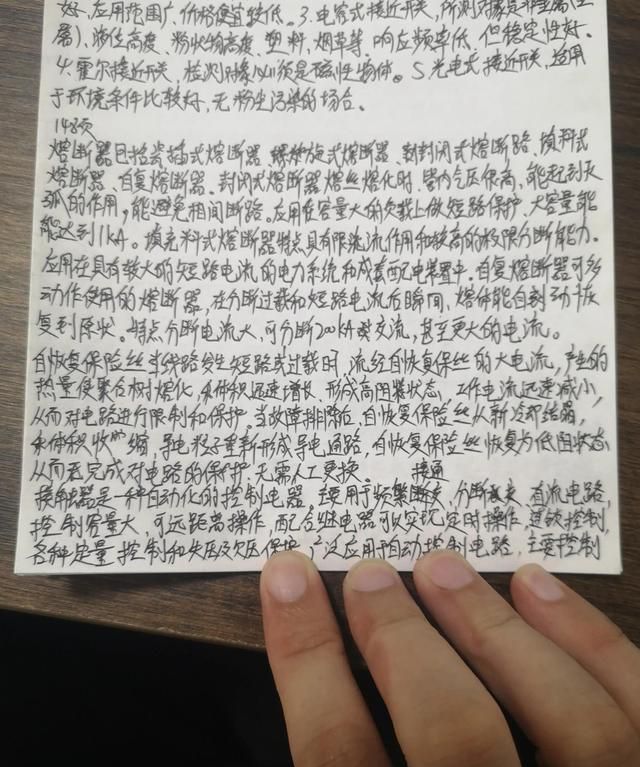 好、应用范围广、价格便宜较低。3.电容式接近开关，所测对象是非金属(红
属)、液位高度、粉状物高度、塑料、烟草等、响应频率低、但稳定性好。
4.霍尔接近开关，检测对象必须是磁性物体。5光电式接近开关，适用
于环境条件比较好，无粉尘污染的场合。
148页
熔断器包括瓷插式熔断器、螺旋式熔断器、封闭式熔断路、填料式
熔断器、自复熔断器、封闭式熔断器熔丝熔化时、管内气压很高，能起到灭
弧的作用，能避免相间断路。应用在容量大的负载上做短路保护、大容量能
能达到1kA。填充料式熔断器特点具有限流作用和较高的极限分断能力。
应用在具有较大的短路电流的电力系统和成套配电装置中。自复熔断器可多
动作使用的熔断器，在分断过载和短路电流后瞬间，熔体能自动恢
复到原状。特点分断电流大，可分断200kA交流，甚至更大的电流。
自恢复保险丝当线路发生短路或过载时，流经自恢复保丝的大电流，产生的
热量使聚合树熔化，体积迅速增长、形成高阻状态，工作电流迅速减小，
从而对电路进行限制和保护。当故障排除后，自恢复保险丝从新冷却结晶，
体积收缩，导电粒子重新形成导电通路，自恢复保险丝恢复为低阻状态
从而完成对电路的保护，无需人工更换。 接通
接触器是一种自动化的控制电器，主要用于频繁、分断、直流电路，
控制容量大，可远距离操作，配合继电器可以实现定时操作，连锁控制，
各种定量控制和失压及欠压保护，广泛应用于自动控制电路，主要控制